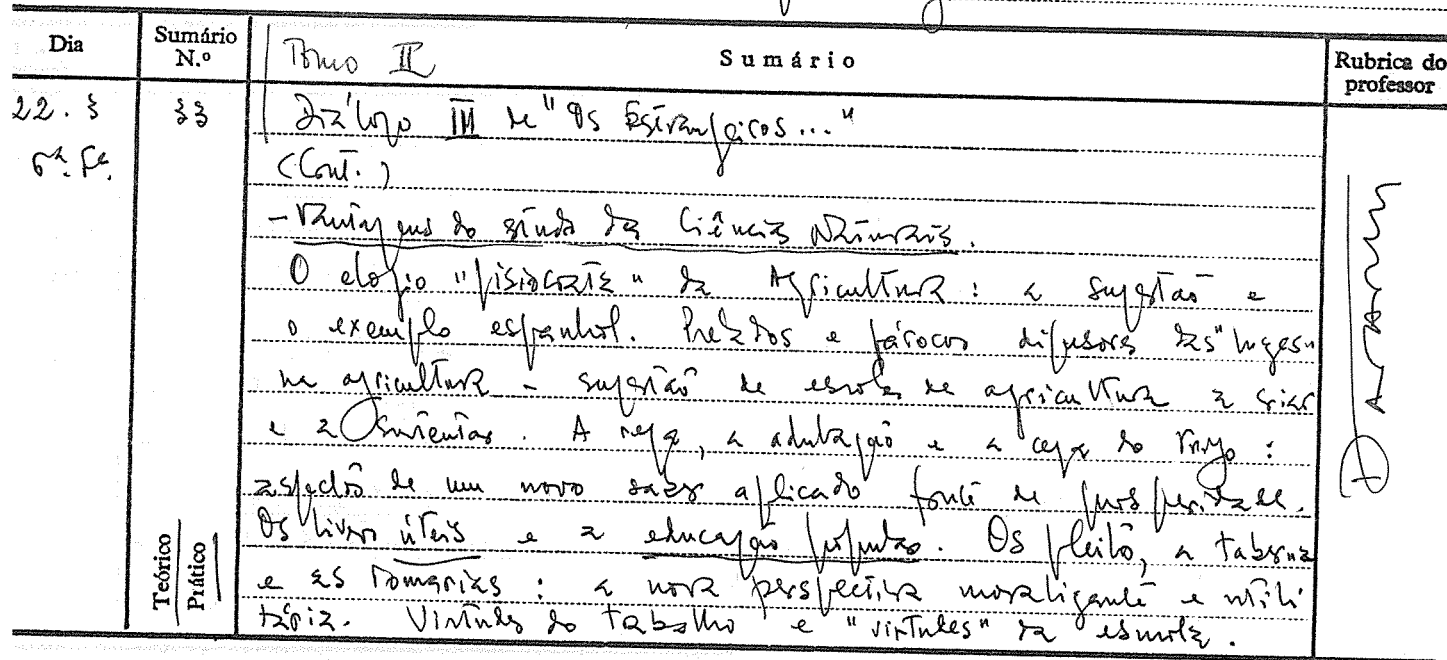 Dia
Sumário N.º
Tomo II
Sumário
Rubrica do professor
22. 3
33
Diálogo III de "Os Estrangeiros..."
6ª. Fª.
(Cont.)
- Vantagens do estudo das Ciências Naturais.
O elogio "fisiocrata" da Agricultura: a sugestão e
o exemplo espanhol. Prelados e párocos difusores das "luzes"
na agricultura - sugestão de escolas de agricultura a criar
e a sustentar. A rega, a adubação e a do trigo:
aspectos de um novo saber aplicado fonte de prosperidade.
Os livros úteis e a educação popular. Os pleitos, a taberna
e as romarias: a nova perspectiva moralizante e utili
tária. Virtudes do trabalho e "virtudes" da esmola.
Teórico
Prático